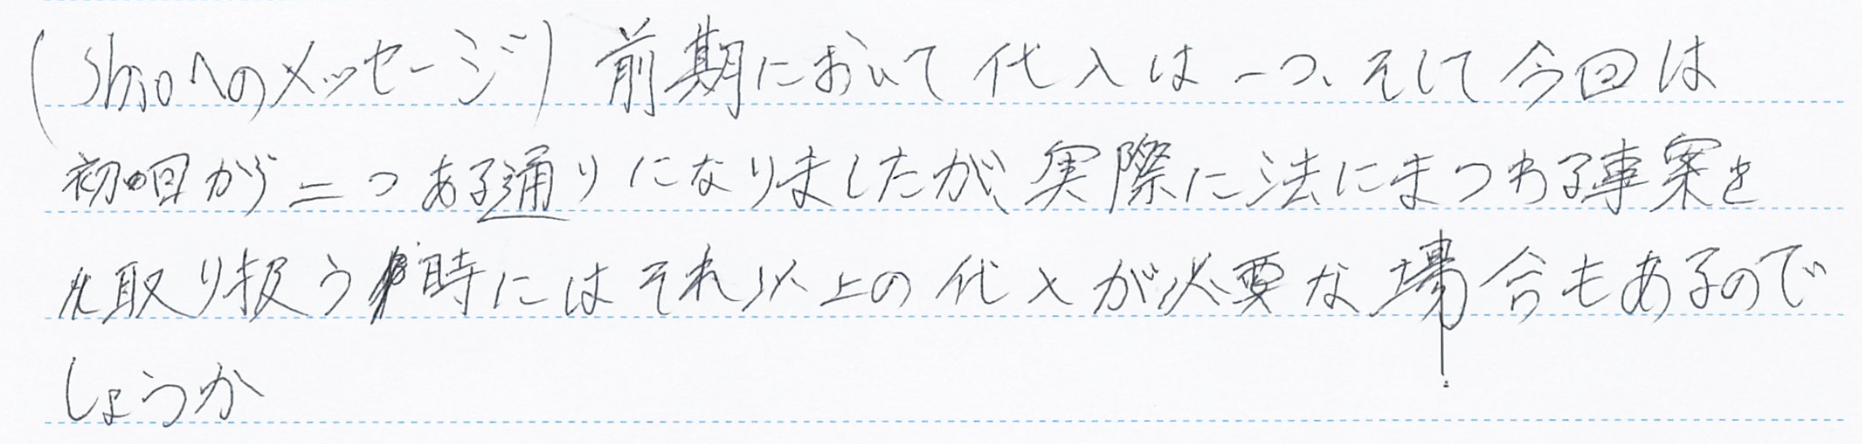 (Shioへのメッセージ) 前期において代入は一つ、そして今回は
初回から二つある通りになりましたが、実際に法にまつわる事案を
取り扱う時にはそれ以上の代入が必要な場合もあるので
しょうか